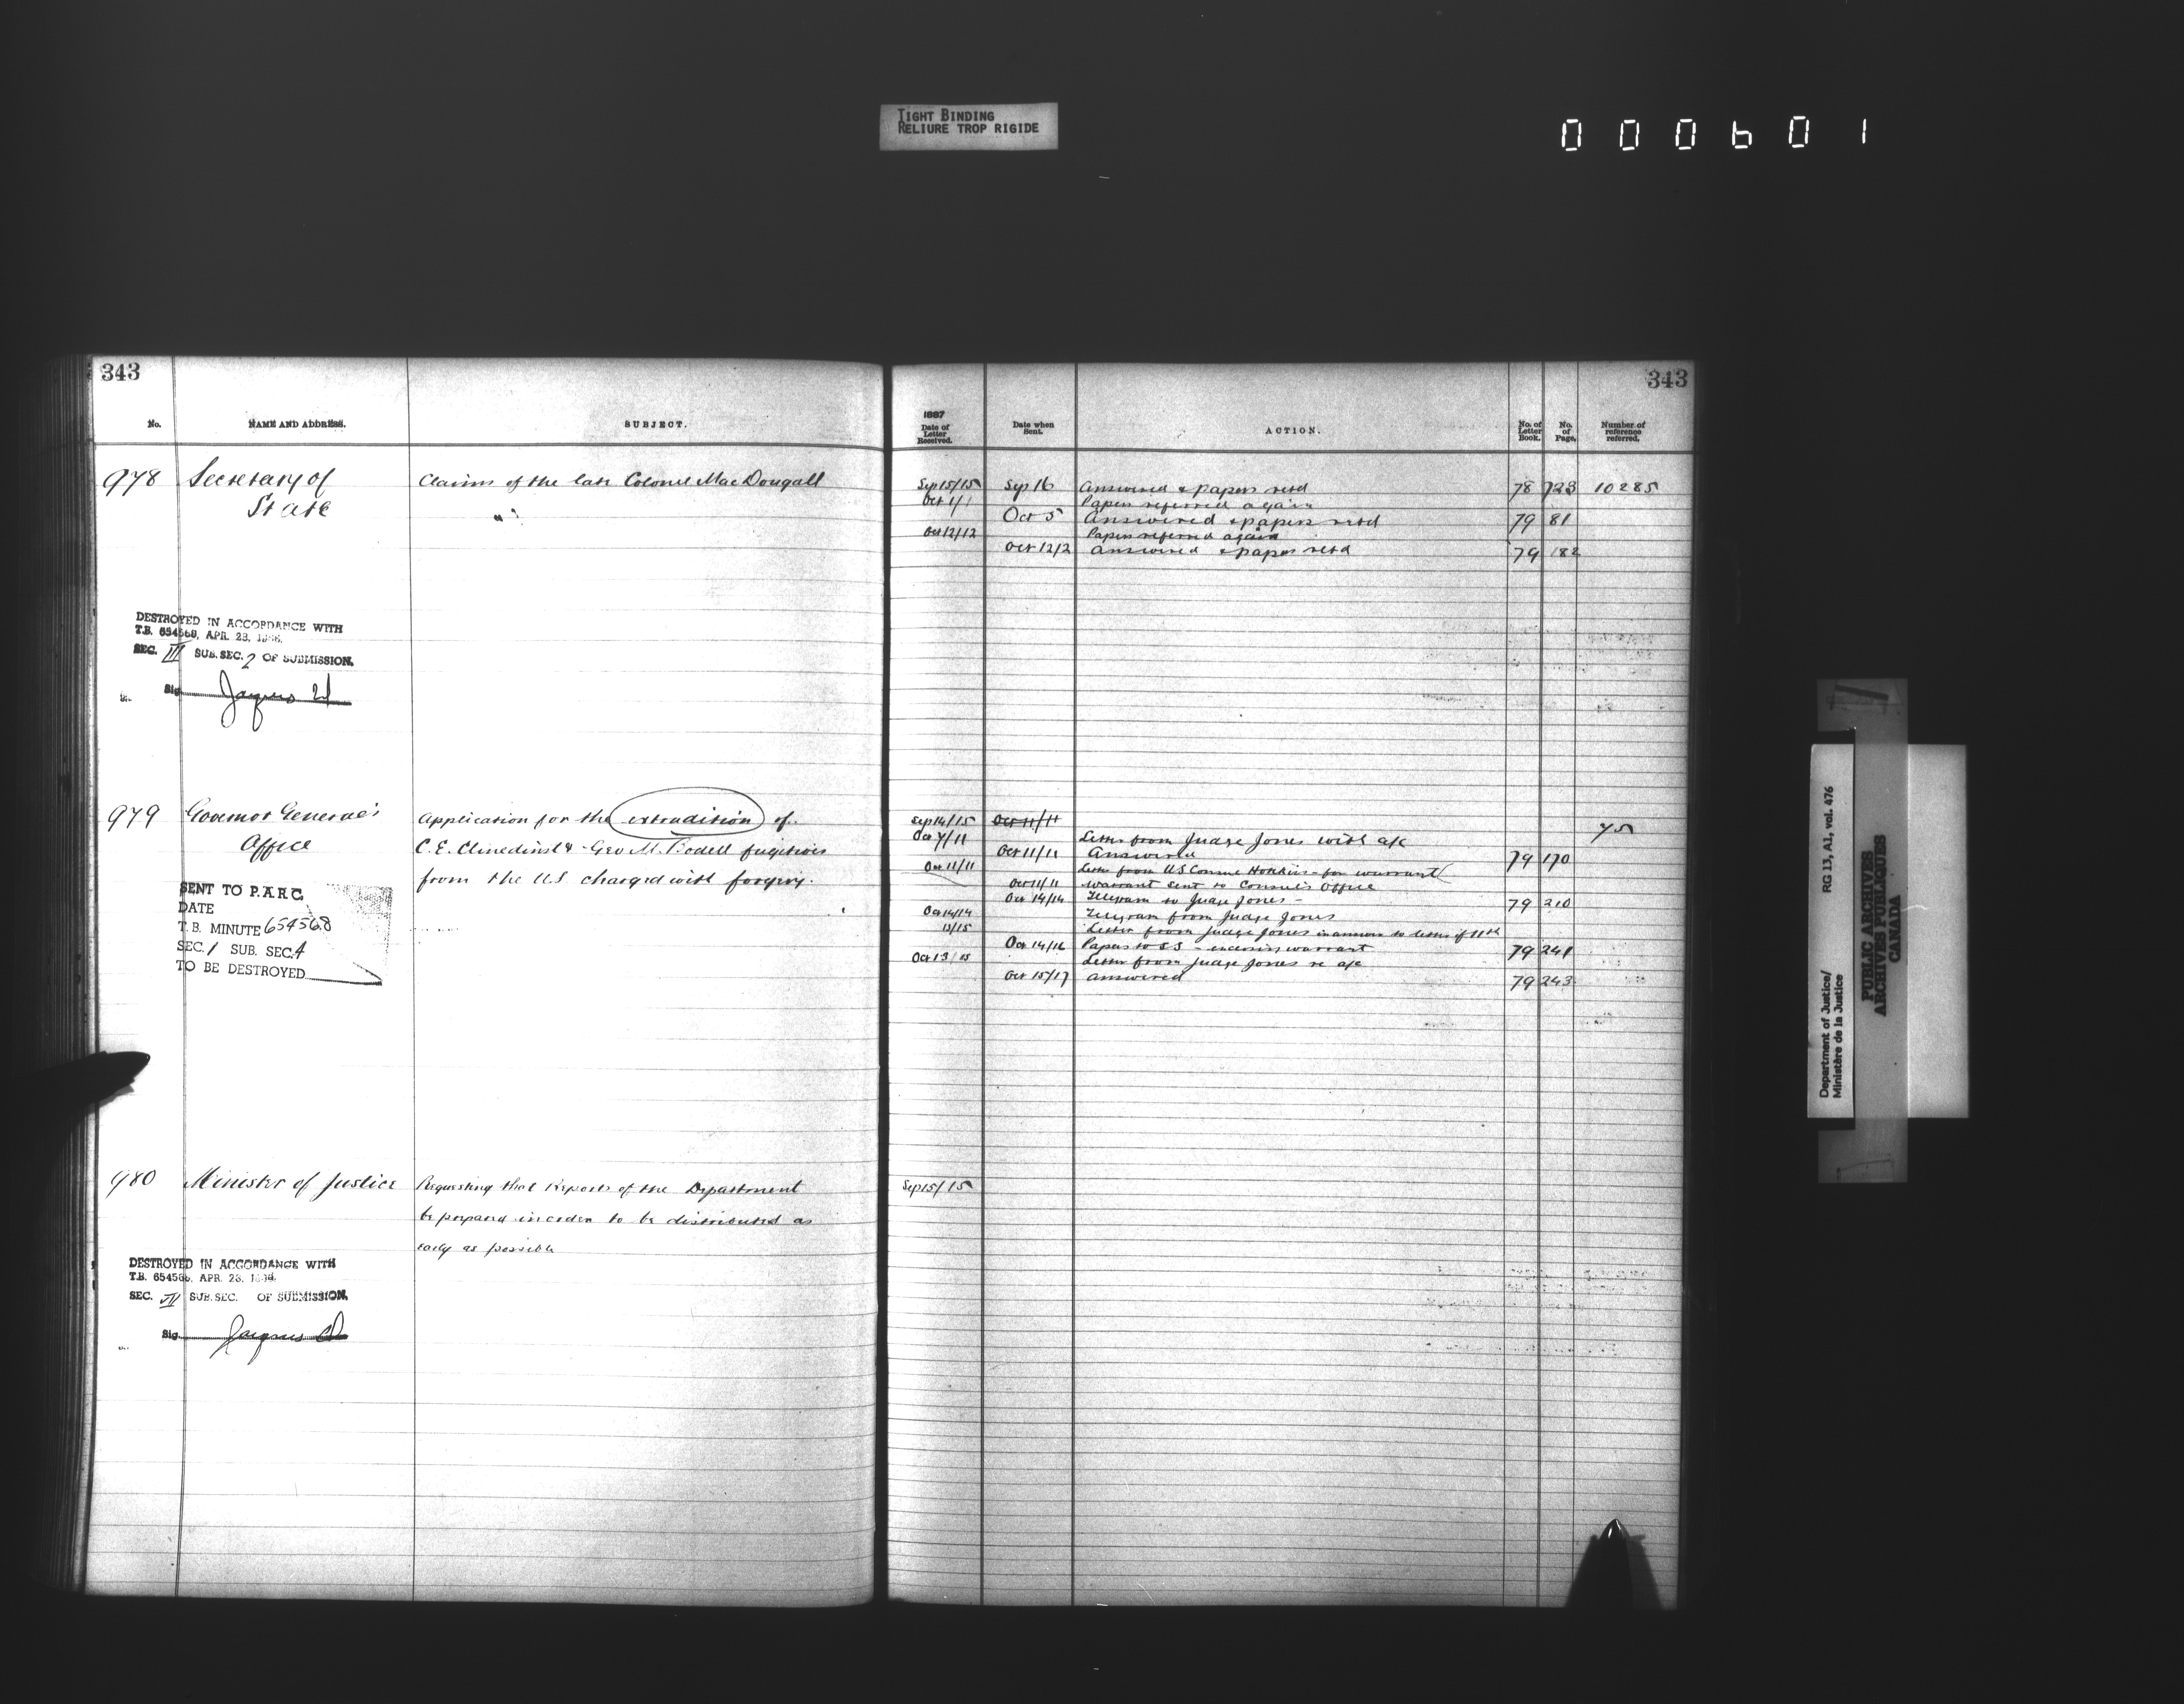 TIGHT BINDING
RELIURE TROP RIGIDE
000601
343
No. NAME AND ADDRESS. SUBJECT.
978 Secretary of State Claims of the late Colonel MacDougall
" "
DESTROYED IN ACCORDANCE WITH
T.B. 654569, APR. 23,
SEC. III SUB. SEC. 2 OF SUBMISSION.
Sig. Jacques
979 Governor General's Office Application for the extradition of
C.E. Clinedinst & Geo M. Bodell fugitives
from the U.S. charged with forgery.
SENT TO P.A.R.C.
DATE
T.B. MINUTE 654568
SEC. 1 SUB. SEC. 4
TO BE DESTROYED
980 Minister of Justice Requesting that Reports of the Department
be prepared in order to be distributed as
early as possible
DESTROYED IN ACCORDANCE WITH
T.B. 654568, APR. 23,
SEC. IV SUB. SEC. OF SUBMISSION.
Sig. Jacques
343
1887
Date of Letter Received. Date when Sent. ACTION. No. of Letter Book. No. of Page. Number of reference referred.
Sep 15/15 Sep 16 Answered & papers retd 78 723 10285
Oct 1/1 Papers referred again
Oct 5 Answered & papers retd 79 81
Oct 12/12 Papers referred again
Oct 12/2 Answered & papers retd 79 182
Sep 14/15 Oct 11/11 75
Oct 7/11 Letter from Judge Jones with a/c
Oct 11/11 Answered 79 170
Oct 11/11 Letter from US Consul Hotchkiss for warrant
Oct 11/11 Warrant sent to Consul's Office
Oct 14/14 Telegram to Judge Jones - 79 210
Oct 14/14 Telegram from Judge Jones
13/15 Letter from Judge Jones in answer to letter of 11th
Oct 14/16 Papers to S.S. - enclosing warrant 79 241
Oct 13/15 Letter from Judge Jones re a/c
Oct 15/17 Answered 79 243
Sep 15/15
Department of Justice/
Ministère de la Justice
RG 13, A1, vol. 476
PUBLIC ARCHIVES
ARCHIVES PUBLIQUES
CANADA